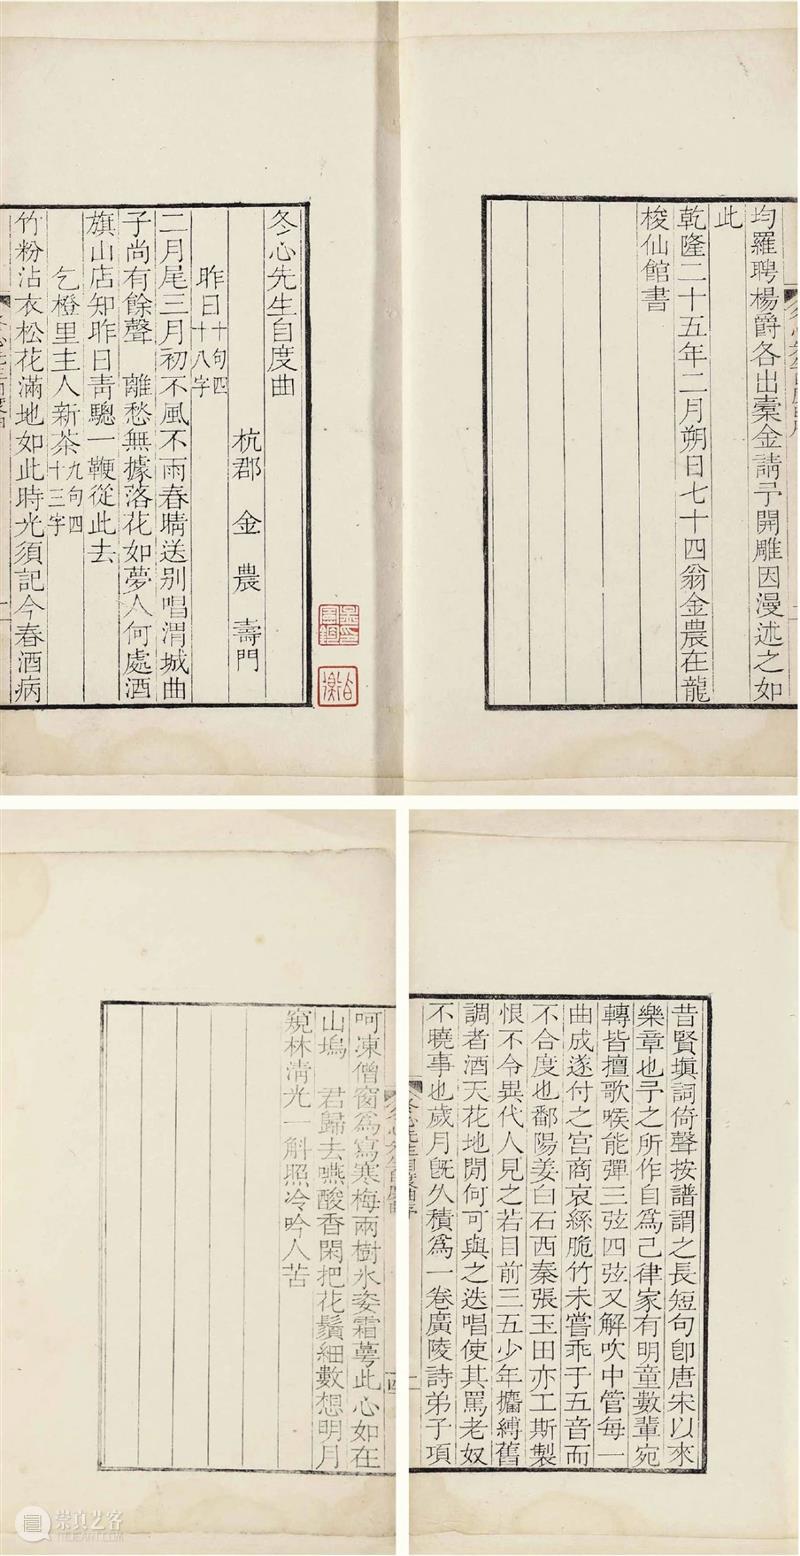 均羅聘楊爵各出橐金請予開雕因漫述之如
此
乾隆二十五年二月朔日七十四翁金農在龍
梭仙館書
冬心先生自度曲
杭郡　金　農　壽門
昨日十句四十八字
二月尾三月初不風不雨春晴送别唱渭城曲
子尚有餘聲　離愁無據落花如夢人何處酒
旗山店知昨日靑驄一鞭從此去
乞橙里主人新茶九句四十三字
竹粉沾衣松花滿地如此時光須記今春酒病
昔賢塡詞倚聲按譜謂之長短句卽唐宋以來
樂章也予之所作自爲己律家有明童數輩宛
轉皆擅歌喉能彈三弦四弦又解吹中管每一
曲成遂付之宮商哀絲脆竹未嘗乖于五音而
不合度也鄱陽姜白石西秦張玉田亦工斯製
恨不令異代人見之若目前三五少年攜縛舊
調者酒天花地閒何可與之迭唱使其罵老奴
不曉事也歲月旣久積爲一卷廣陵詩弟子項
冬心先生自度曲序
一
呵凍僧窗爲寫寒梅兩樹氷姿霜萼此心如在
山塢　君歸去嚥酸香閑把花鬚細數想明月
窺林淸光一斛照冷吟人苦
四
崇真艺客